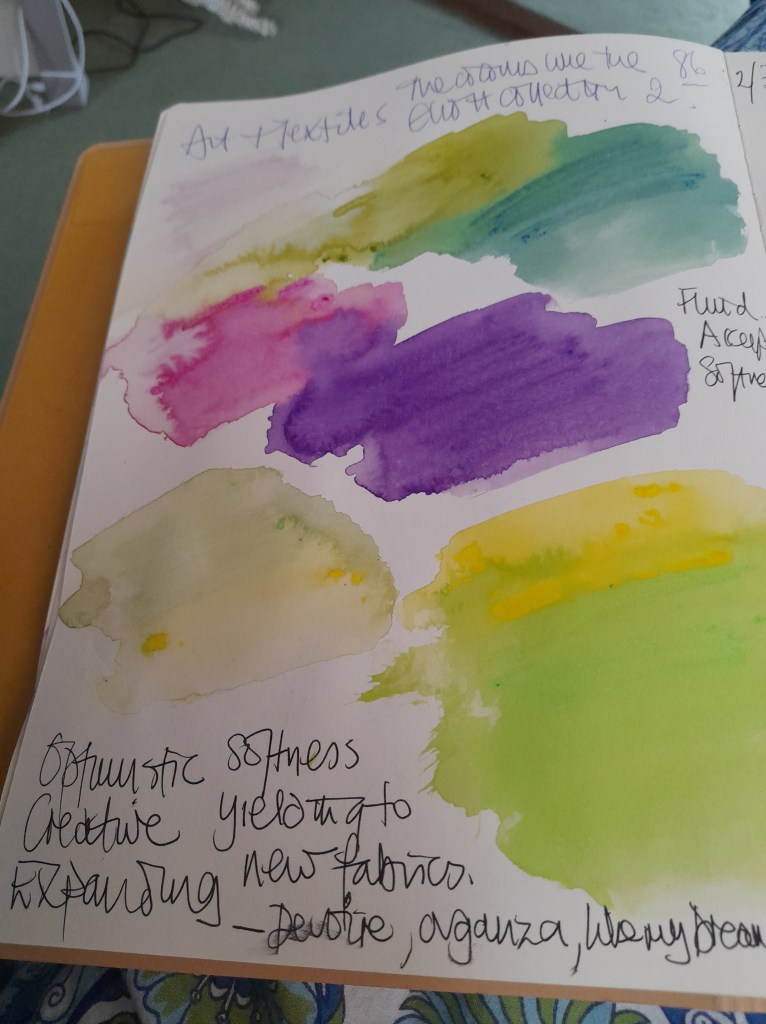 Art + Textiles The colours like the 86
Elliott collection 2.
2/3
Fluid
Accep
Softne
Optimistic Softness
Creative yielding to
Expanding new fabrics.
– Devoire, organza, like my Dream